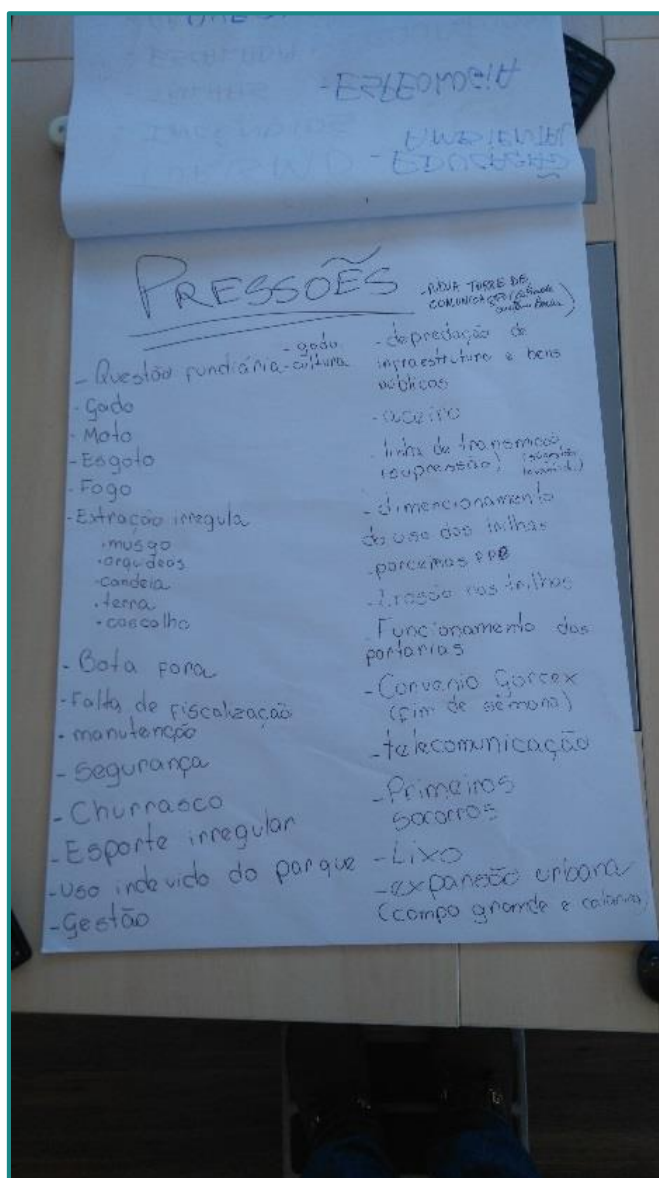 - ESPELEOLOGIA
AMBIENTAL
- EDUCAÇÃO
PRESSÕES
- Questão fundiária - gado
- cultura
- Gado
- Moto
- Esgoto
- Fogo
- Extração irregula
• musgo
• orquideas
• candeia
• terra
• cascalho
- Bota fora
- Falta de fiscalização
- manutenção
- Segurança
- Churrasco
- Esporte irregular
- Uso indevido do parque
- Gestão
- NOVA TORRE DE
COMUNICAÇÃO
- depredação de
infraestrutura e bens
públicos
- aceiro
- linha de transmissão
(supressão)
- dimencionamento
do uso das trilhas
- parcerias PPP
- Erosão nas trilhas
- Funcionamento das
portarias
- Convenio Gorcex
(fim de semana)
- telecomunicação
- Primeiros
Socorros
- Lixo
- expansão urbana
(campo grande e